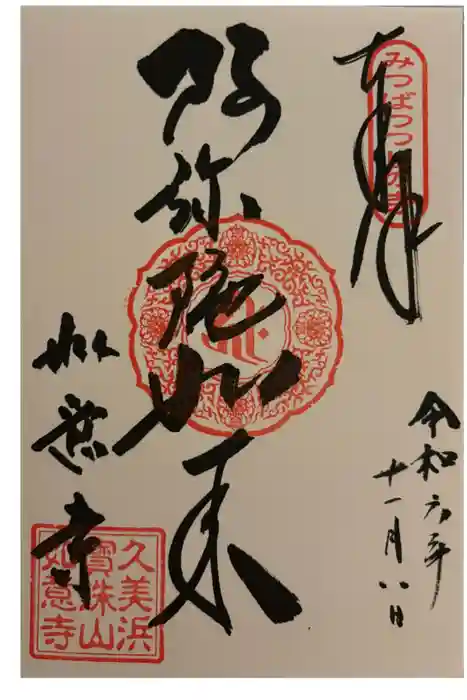 奉拝
みつばつつじの寺
令和六年
十一月八日
阿弥陀如来
如意寺
久美浜
寶珠山
如意寺